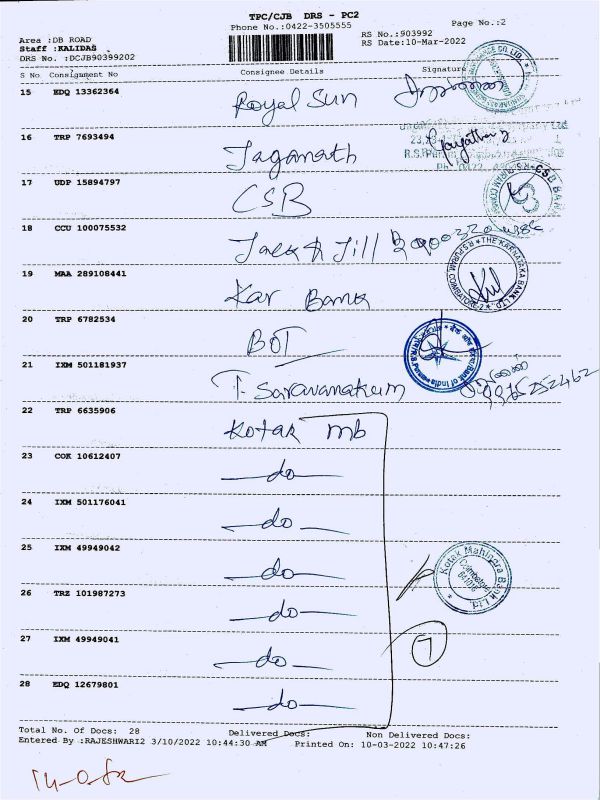 TPC/CJB DRS - PC2
Phone No.:0422-3505555
Page No.:2
Area :DB ROAD
Staff :KALIDAS
DRS No. :DCJB90399202
RS No.:903992
RS Date:10-Mar-2022
S No Consignment No Consignee Details Signature
15 EDQ 13362364 Royal Sun
16 TRP 7693494 Jaganath
17 UDP 15894797 CSB
18 CCU 100075532 Jack & Jill
19 MAA 289108441 Kar Bank
20 TRP 6782534 BOI
21 IXM 501181937 T. Saravanakum
22 TRP 6635906 Kotak mb
23 COK 10612407 —do—
24 IXM 501176041 —do—
25 IXM 49949042 —do—
Kotak Mahindra Bank Ltd.
Coimbatore
26 TRZ 101987273 —do—
27 IXM 49949041 —do—
7
28 EDQ 12679801 —do—
Total No. Of Docs: 28 Delivered Docs: Non Delivered Docs:
Entered By :RAJESHWARI2 3/10/2022 10:44:30 AM Printed On: 10-03-2022 10:47:26